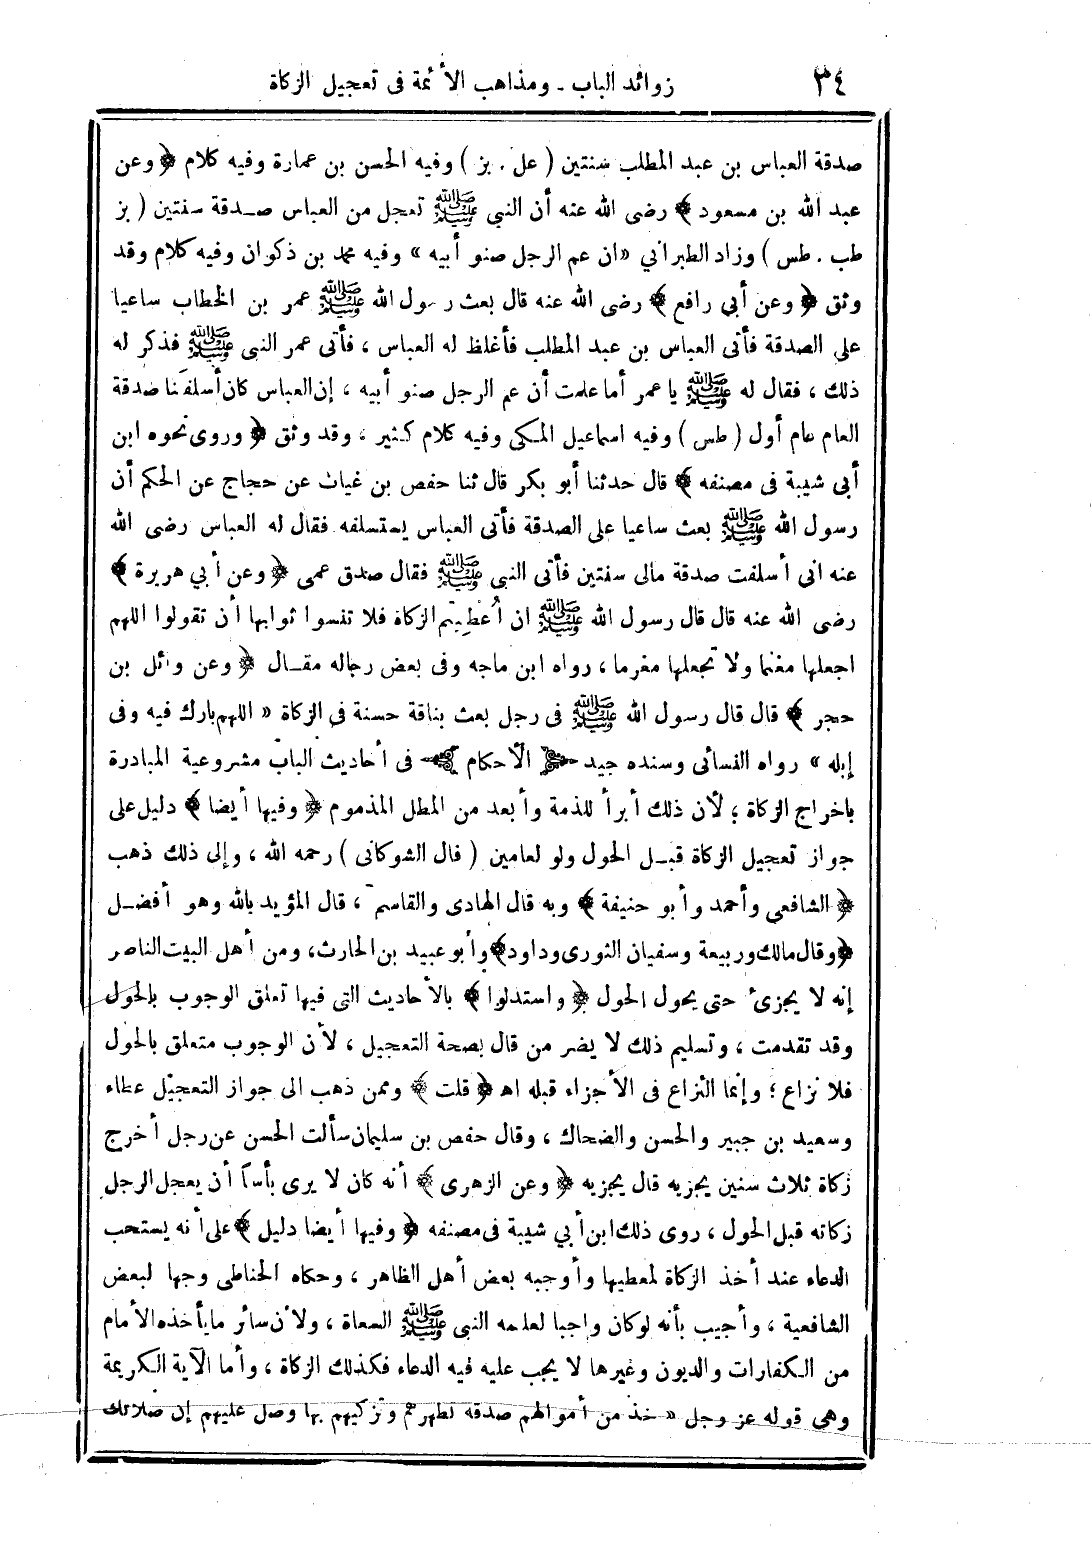 ٣٤ زوائد الباب - ومذاهب الأئمة فى تعجيل الزكاة
صدقة العباس بن عبد المطلب سنتين ( عل . بز ) وفيه الحسن بن عمارة وفيه كلام ﴿ وعن
عبد الله بن مسعود ﴾ رضى الله عنه أن النبي ﷺ تعجل من العباس صدقة سنتين ( بز
طب . طس ) وزاد الطبراني «ان عم الرجل صنو أبيه» وفيه محمد بن ذكوان وفيه كلام وقد
وثق ﴿ وعن أبي رافع ﴾ رضى الله عنه قال بعث رسول الله ﷺ عمر بن الخطاب ساعيا
على الصدقة فأتى العباس بن عبد المطلب فأغلظ له العباس ، فأتى عمر النبى ﷺ فذكر له
ذلك ، فقال له ﷺ يا عمر أما علمت أن عم الرجل صنو أبيه ، إن العباس كان أسلفَنا صدقة
العام عام أول ( طس ) وفيه اسماعيل المكى وفيه كلام كثير ، وقد وثق ﴿ وروى نحوه ابن
أبى شيبة فى مصنفه ﴾ قال حدثنا أبو بكر قال ثنا حفص بن غياث عن حجاج عن الحكم أن
رسول الله ﷺ بعث ساعيا على الصدقة فأتى العباس يستسلفه فقال له العباس رضى الله
عنه انى أسلفت صدقة مالى سنتين فأتى النبى ﷺ فقال صدق عمى ﴿ وعن أبي هريرة ﴾
رضى الله عنه قال قال رسول الله ﷺ ان أُعْطِيتم الزكاة فلا تنسوا ثوابها أن تقولوا اللهم
اجعلها مغنما ولا تجعلها مغرما ، رواه ابن ماجه وفى بعض رجاله مقال ﴿ وعن وائل بن
حجر ﴾ قال قال رسول الله ﷺ فى رجل بعث بناقة حسنة في الزكاة « اللهم بارك فيه وفى
إبله » رواه النسائى وسنده جيد الأحكام فى أحاديث الباب مشروعية المبادرة
باخراج الزكاة ؛ لأن ذلك أبرأ للذمة وأبعد من المطل المذموم ﴿ وفيها أيضا ﴾ دليل على
جواز تعجيل الزكاة قبل الحول ولو لعامين ( قال الشوكانى ) رحمه الله ، وإلى ذلك ذهب
﴿ الشافعى وأحمد وأبو حنيفة ﴾ وبه قال الهادى والقاسم ، قال المؤيد بالله وهو أفضل
﴿ وقال مالك وربيعة وسفيان الثورى وداود ﴾ وأبو عبيد بن الحارث، ومن أهل البيت الناصر
إنه لا يجزئ حتى يحول الحول ﴿ واستدلوا ﴾ بالأحاديث التى فيها تعلق الوجوب بالحول
وقد تقدمت ، وتسليم ذلك لا يضر من قال بصحة التعجيل ، لأن الوجوب متعلق بالحول
فلا نزاع ؛ وإنما النزاع فى الأجزاء قبله اه ﴿ قلت ﴾ وممن ذهب الى جواز التعجيل عطاء
وسعيد بن جبير والحسن والضحاك ، وقال حفص بن سليمان سألت الحسن عن رجل أخرج
زكاة ثلاث سنين يجزيه قال يجزيه ﴿ وعن الزهرى ﴾ أنه كان لا يرى بأسا أن يعجل الرجل
زكاته قبل الحول ، روى ذلك ابن أبي شيبة فى مصنفه ﴿ وفيها أيضا دليل ﴾ على أنه يستحب
الدعاء عند أخذ الزكاة لمعطيها وأوجبه بعض أهل الظاهر ، وحكاه الحناطى وجها لبعض
الشافعية ، وأجيب بأنه لو كان واجبا لعلمه النبى ﷺ السعاة ، ولأن سائر ما يأخذه الأمام
من الكفارات والديون وغيرها لا يجب عليه فيه الدعاء فكذلك الزكاة ، وأما الآية الكريمة
وهى قوله عز وجل « خذ من أموالهم صدقة تطهرهم وتزكيهم بها وصل عليهم إن صلاتك